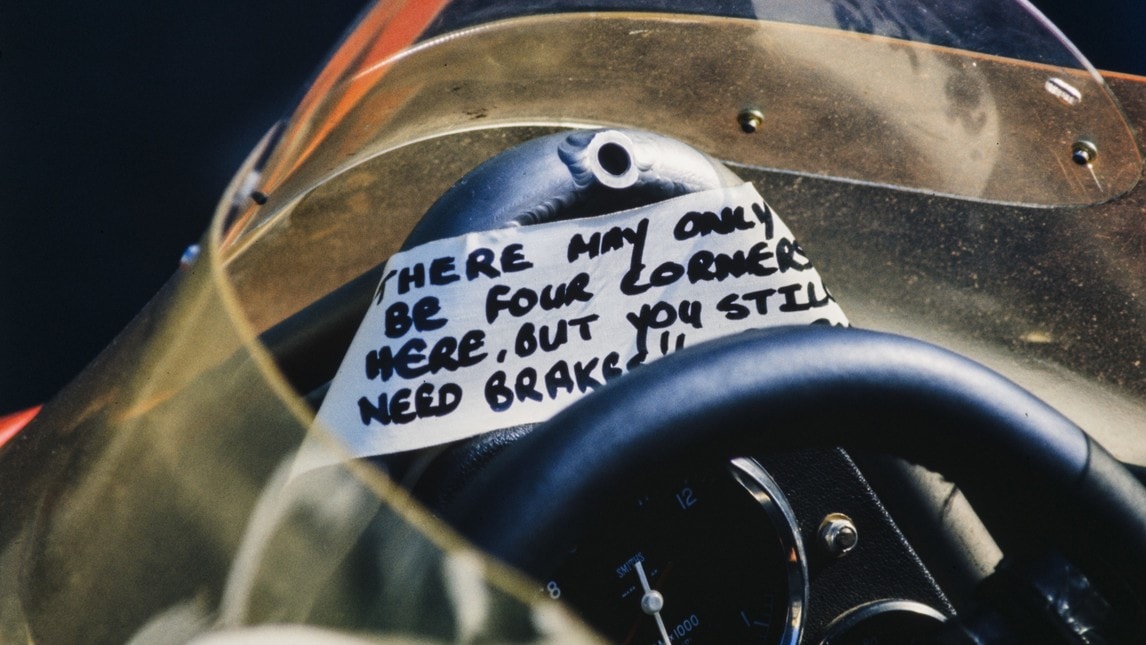 THERE MAY ONLY
BE FOUR CORNERS
HERE, BUT YOU STILL
NEED BRAKES!!
12
SMITHS
8
×1000